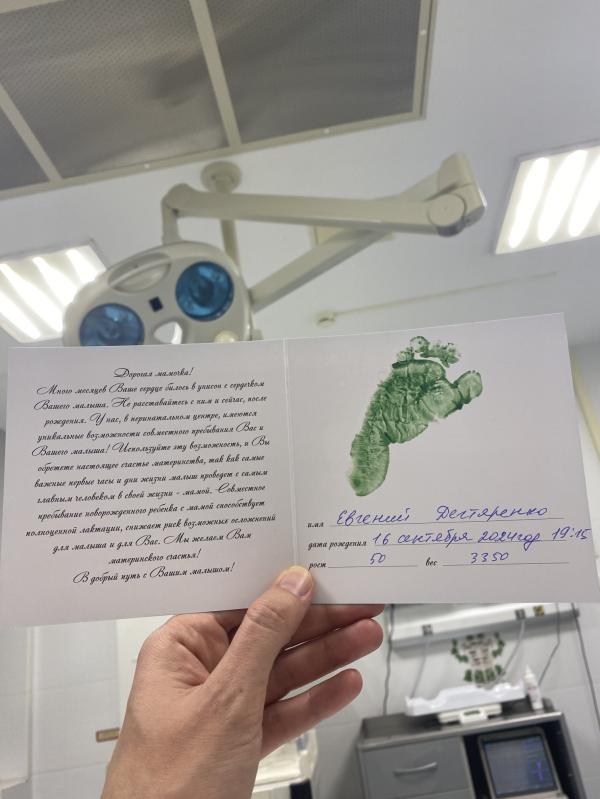 Дорогая мамочка!
Много месяцев Ваше сердце билось в унисон с сердечком
Вашего малыша. Не расставайтесь с ним и сейчас, после
рождения. У нас, в перинатальном центре, имеются
уникальные возможности совместного пребывания Вас и
Вашего малыша! Используйте эту возможность, и Вы
обретете настоящее счастье материнства, так как самые
важные первые часы и дни жизни малыш проведет с самым
главным человеком в своей жизни - мамой. Совместное
пребывание новорожденного ребенка с мамой способствует
полноценной лактации, снижает риск возможных осложнений
для малыша и для Вас. Мы желаем Вам
материнского счастья!
В добрый путь с Вашим малышом!
имя Евгений Дегтяренко
дата рождения 16 сентября 2024год 19:15
рост 50 вес 3350